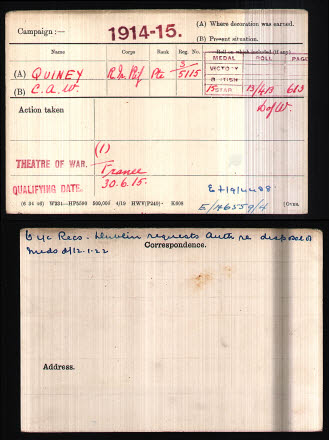 Campaign :— 1914-15. (A) Where decoration was earned.
(B) Present situation.
Name Corps Rank Reg. No. Roll on which included (if any)
MEDAL ROLL PAGE
(A) QUINEY R. Ir. Rif Pte 3/5115 VICTORY
BRITISH
(B) C.A.W. 15 STAR 13/4B 613
Action taken DofW.
(1)
THEATRE OF WAR. France
QUALIFYING DATE. 30.6.15.
(6 34 46) W234—HP5590 500,000 4/19 HWV(P240) K608 [OVER.
O i/c Recs. Dublin requests Auth re disposal of
Meds d/12.1.22
Correspondence.
Address.